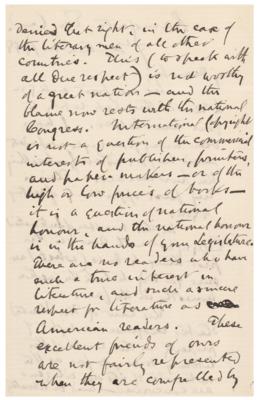 denied that right, in the case of
the literary men of all other
countries. This (to speak with
all due respect) is not worthy
of a great nation — and the
blame now rests with the national
Congress. International Copyright
is not a question of the commercial
interests of publishers, printers,
and paper makers — or of the
high or low prices of books —
it is a question of national
honour, and the national honour
is in the hands of your legislature.
There are no readers who have
such a true interest in
literature, and such a sincere
respect for literature as
American readers. These
excellent friends of ours
are not fairly represented
when they are compelled by